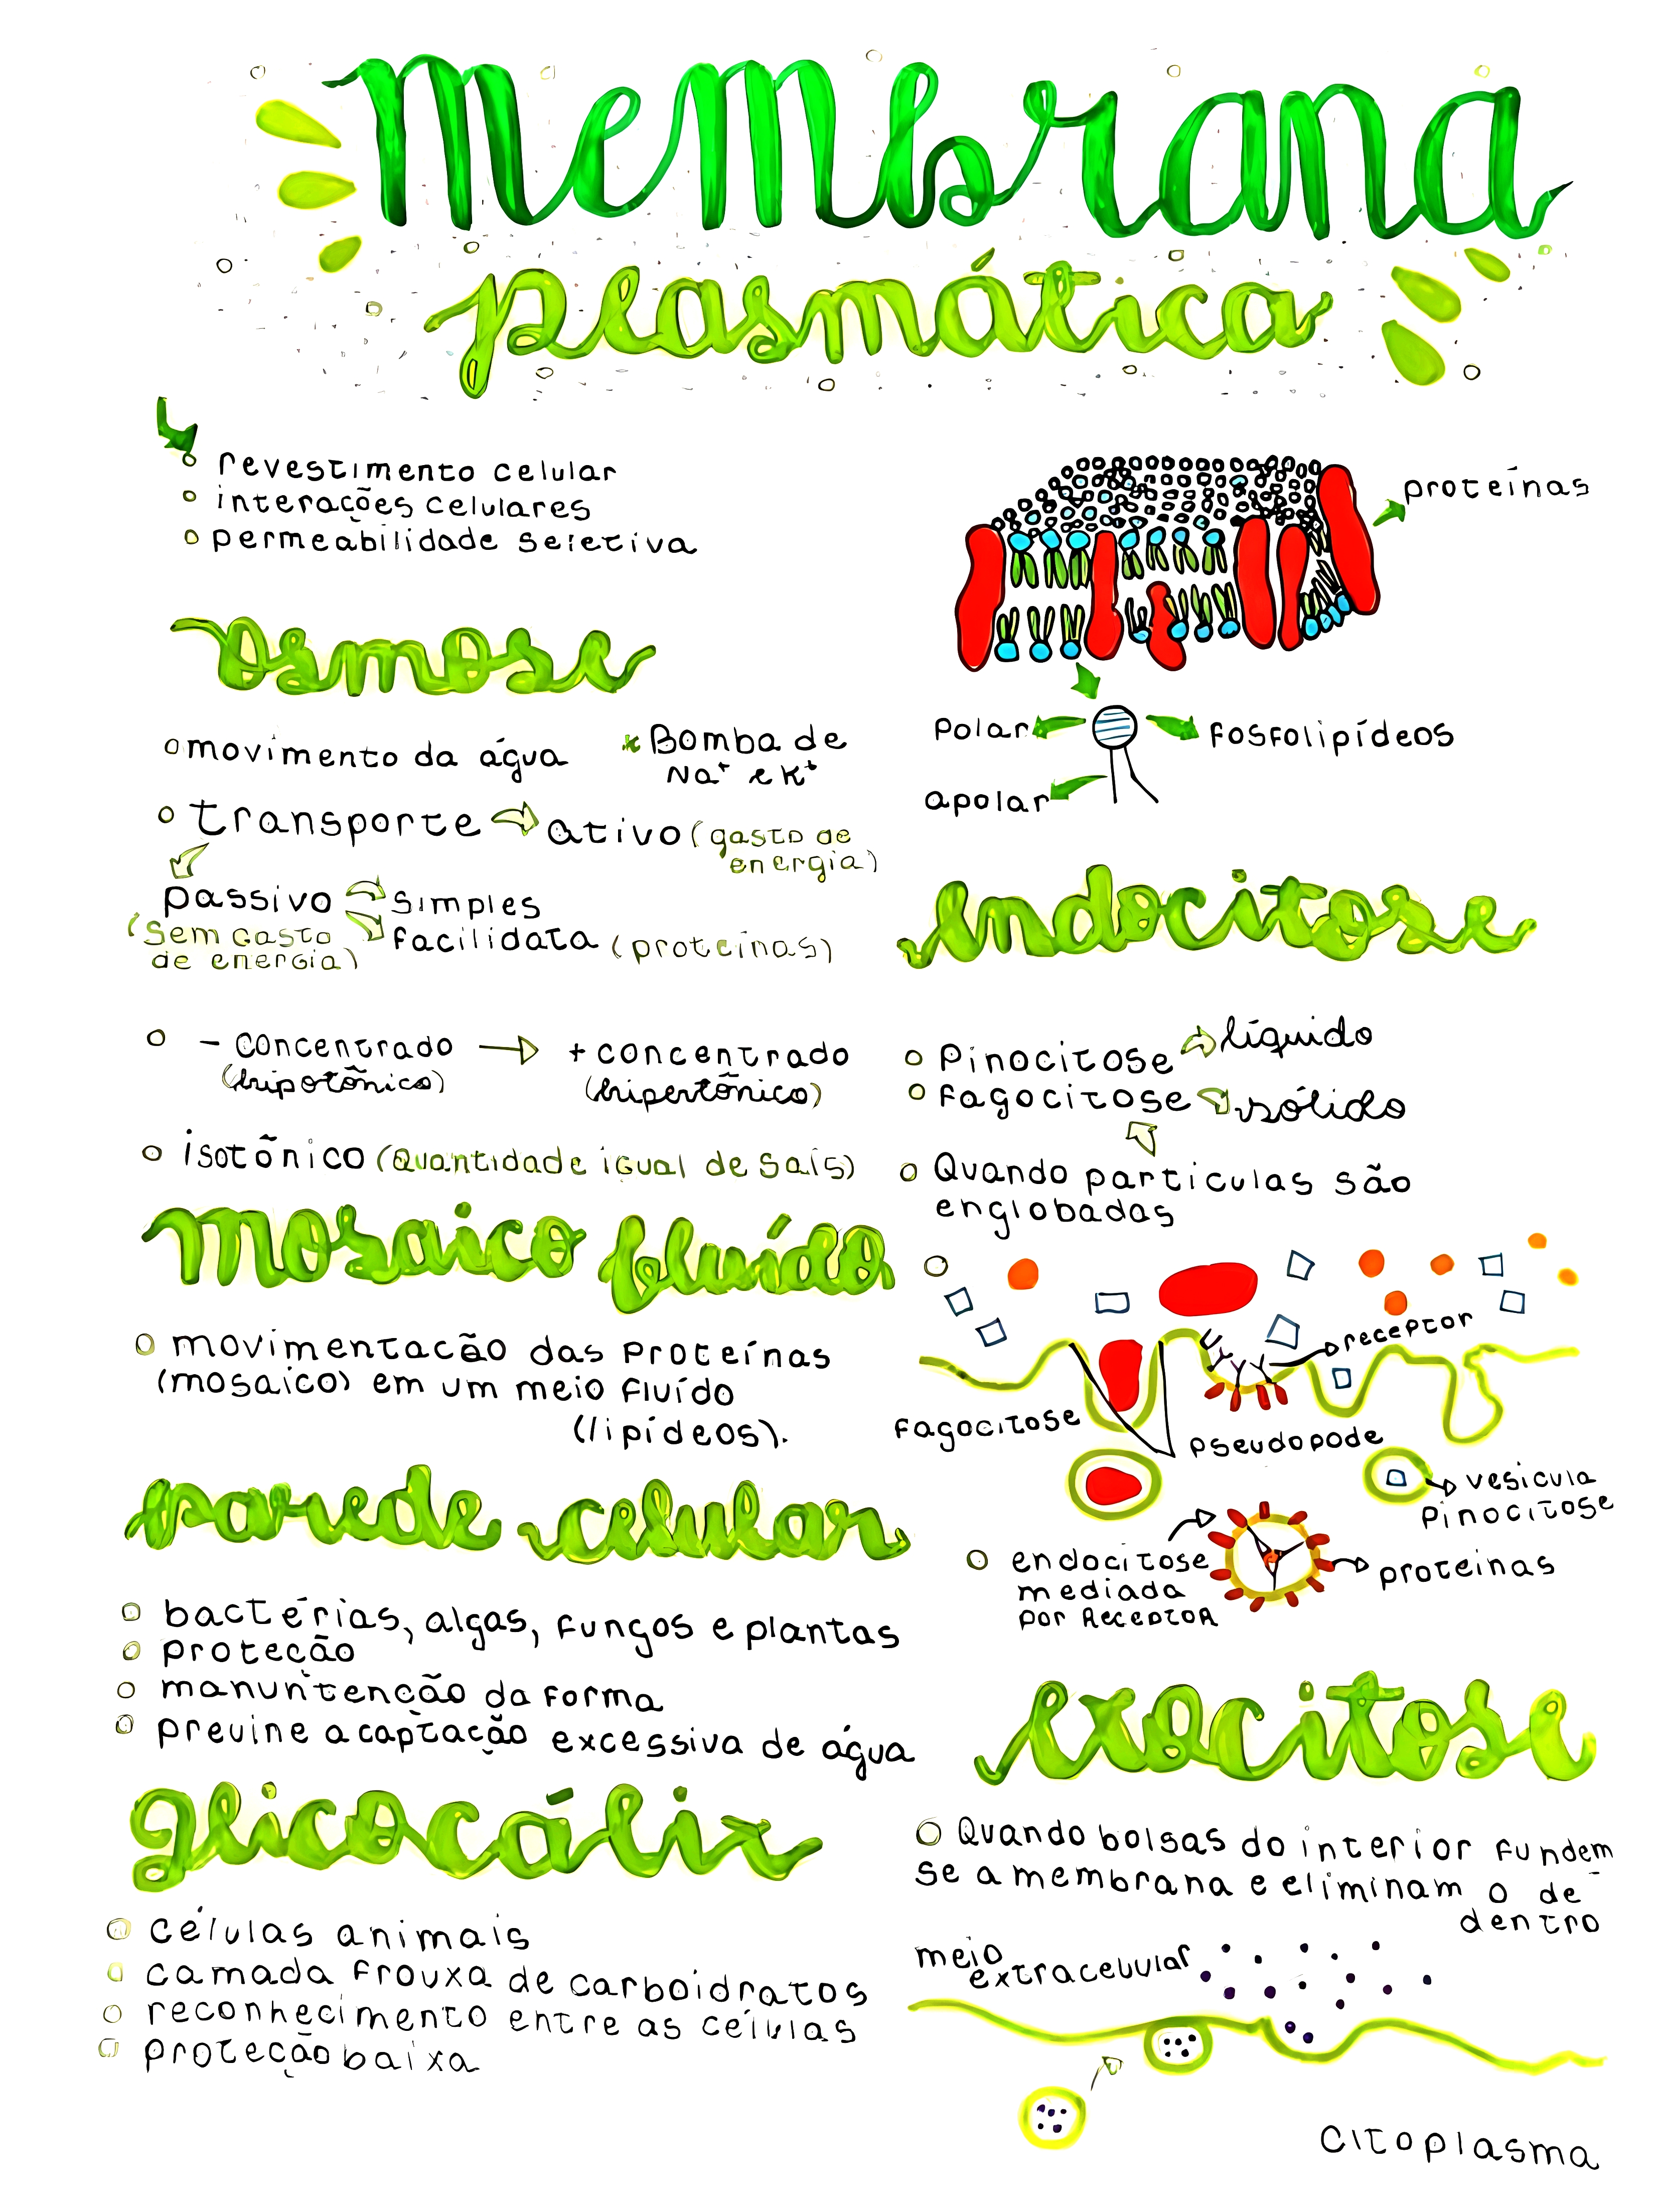 Membrana
plasmática
revestimento celular
interações celulares
permeabilidade seletiva
proteínas
Polar
fosfolipídeos
apolar
Osmose
movimento da água
* Bomba de
Na⁺ e K⁺
transporte
ativo (gasto de
energia)
passivo
(Sem Gasto
de energia)
simples
facilidata (proteínas)
- concentrado
(hipotônico)
+ concentrado
(hipertônico)
isotônico (Quantidade igual de sais)
Mosaico fluído
movimentação das Proteínas
(mosaico) em um meio fluído
(lipídeos).
parede celular
bactérias, algas, fungos e plantas
proteção
manuntenção da forma
previne a captação excessiva de água
glicocálix
células animais
camada frouxa de carboidratos
reconhecimento entre as células
proteção baixa
Endocitose
Pinocitose
líquido
fagocitose
sólido
Quando particulas são
englobadas
receptor
fagocitose
pseudopode
vesicula
Pinocitose
endocitose
mediada
por Receptor
proteinas
exocitose
Quando bolsas do interior fundem
se a membrana e eliminam o de
dentro
meio
extracelular
Citoplasma